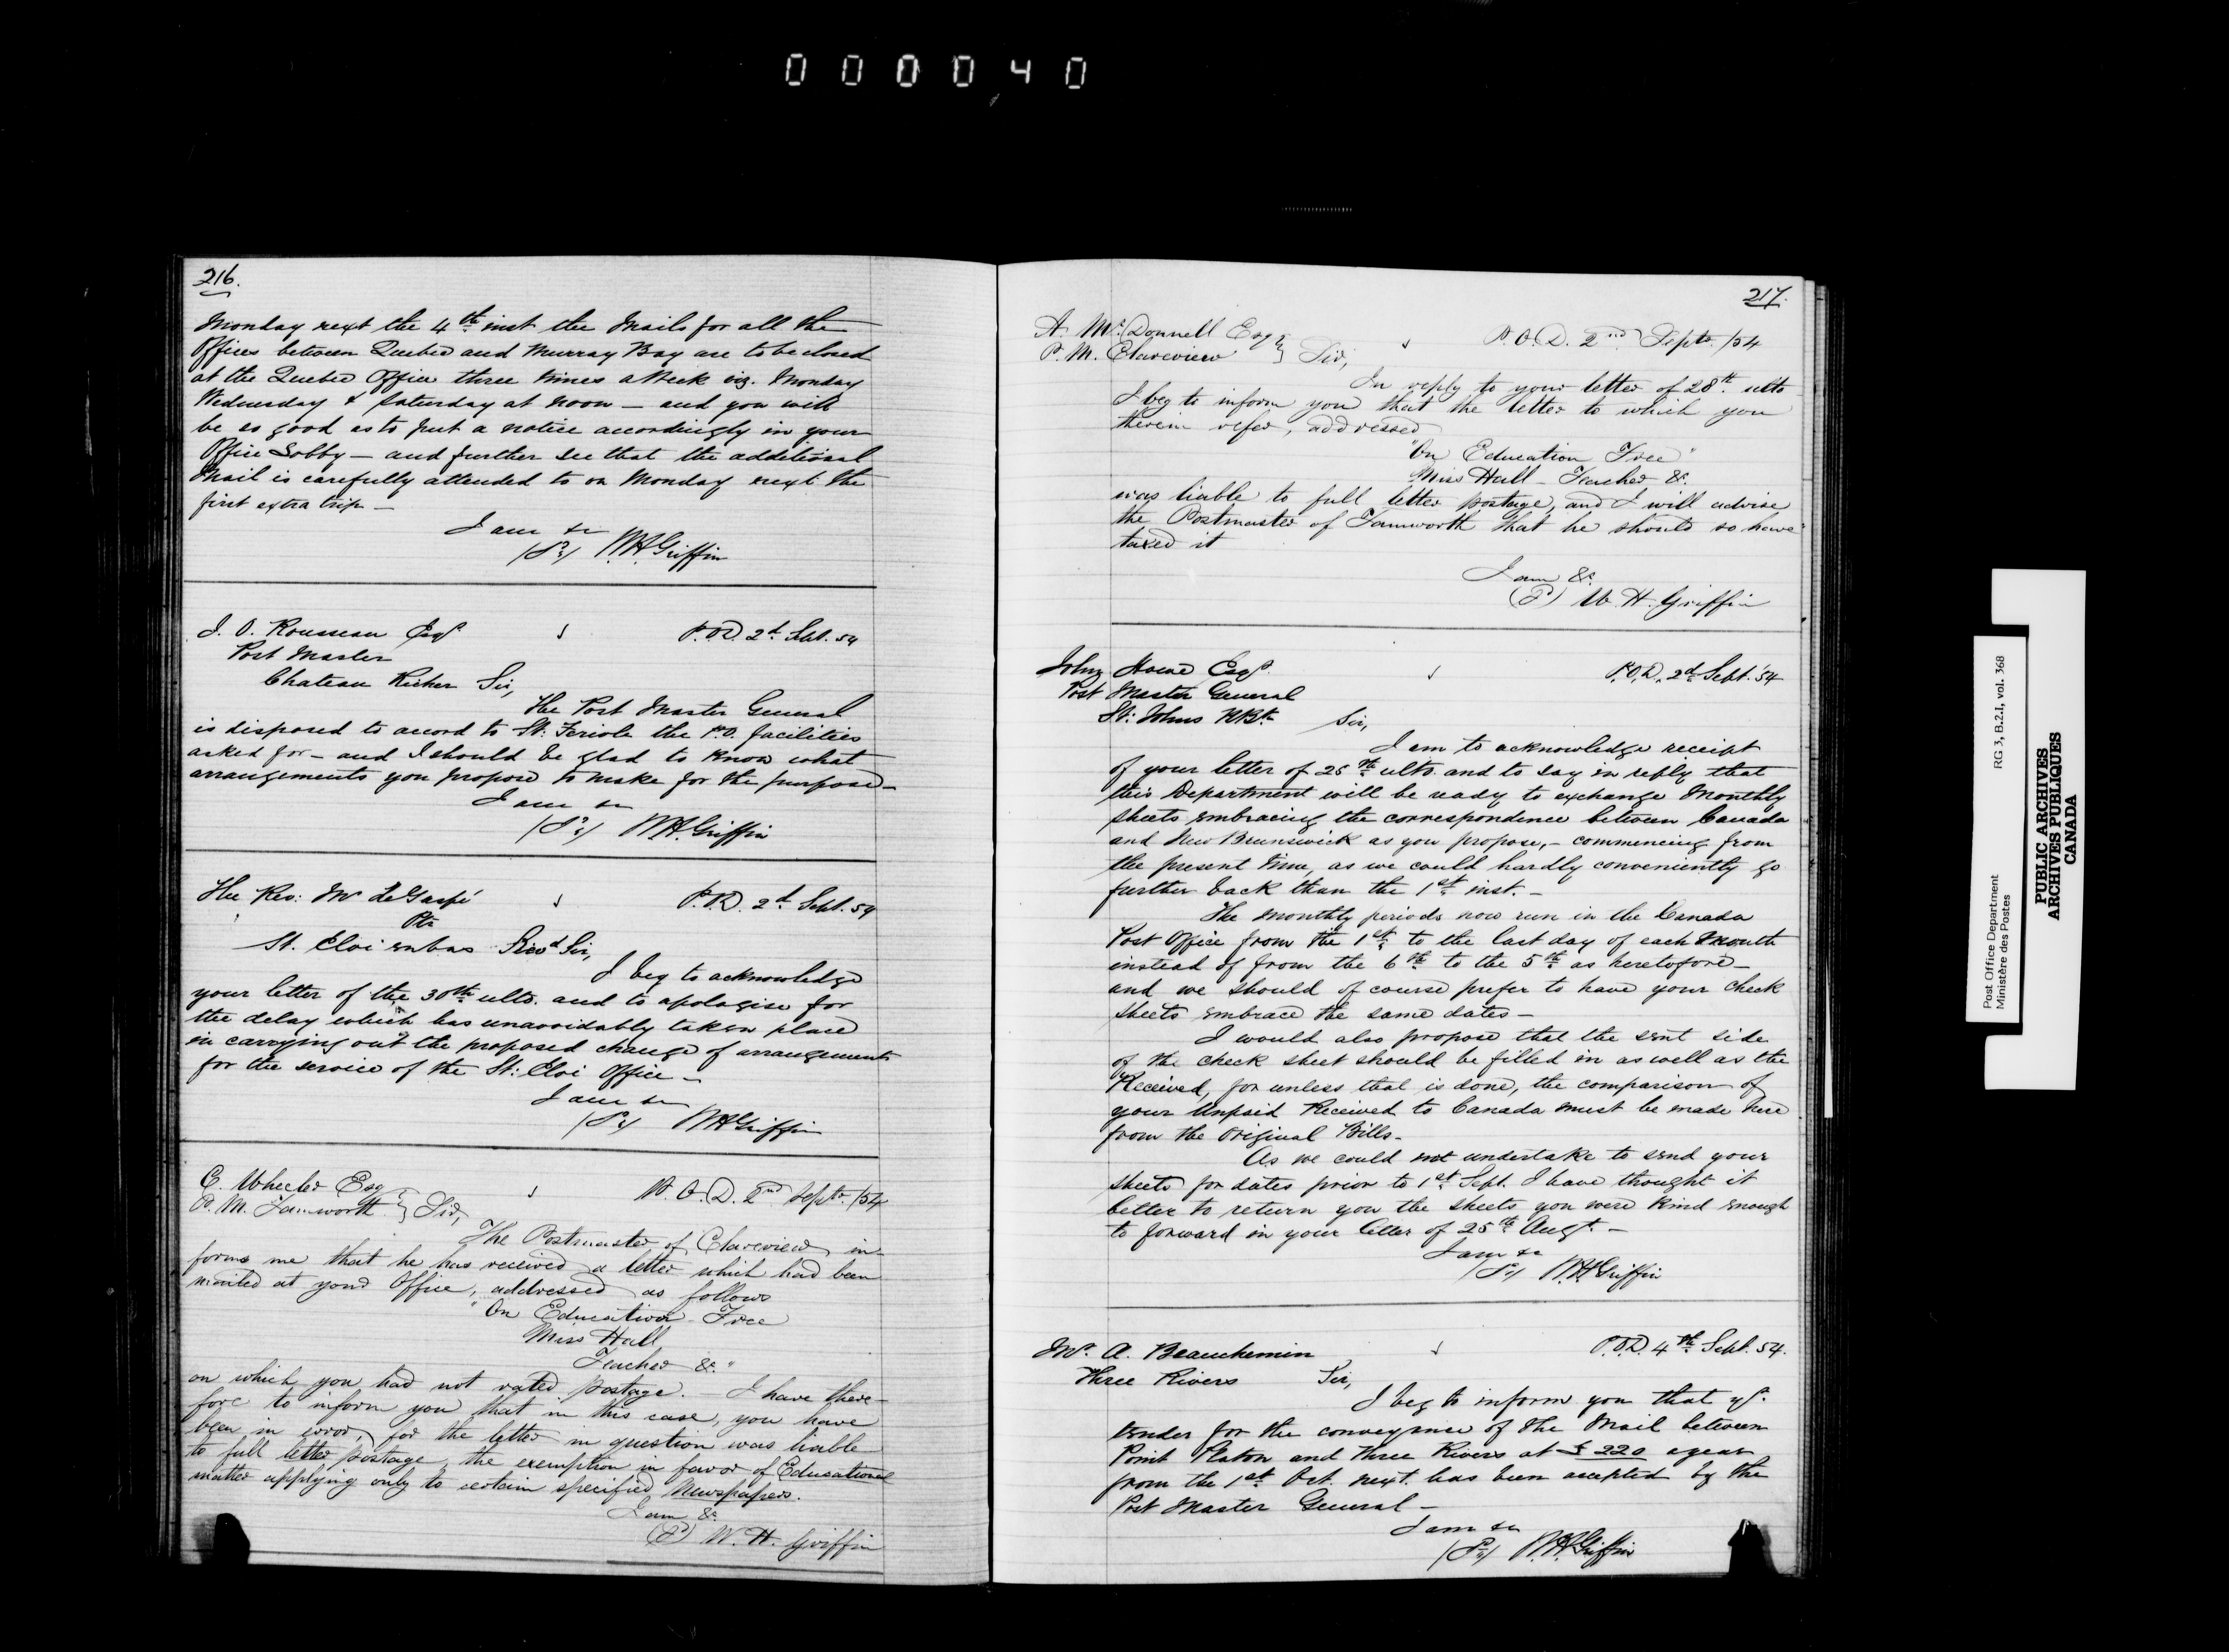 000040
216.
Monday next the 4th inst the Mails for all the
Offices between Quebec and Murray Bay are to be closed
at the Quebec Office three times a Week viz. Monday
Wednesday & Saturday at noon — and you will
be so good as to put a notice accordingly in your
Office Lobby — and further see that the additional
Mail is carefully attended to on Monday next the
first extra trip —
I am &c
W.H. Griffin
J. O. Rousseau Esqr P.O.D. 2d Sept. 54
Post Master
Chateau Richer Sir,
The Post Master General
is disposed to accord to St: Feriole the P.O. facilities
asked for — and I should be glad to know what
arrangements you propose to make for the purpose —
I am &c
WH Griffin
The Rev: Mr DeGaspé P.O.D. 2d Sept. 54
Ptr
St. Eloi enbas Revd Sir,
I beg to acknowledge
your letter of the 30th ulto. and to apologise for
the delay which has unavoidably taken place
in carrying out the proposed change of arrangements
for the service of the St: Eloi Office —
I am &c
WH Griffin
C. Wheeler Esq P.O.D. 2nd Septr. /54
P.M. Tamworth } Sir,
The Postmaster of Clareview in-
forms me that he has received a letter which had been
mailed at your Office, addressed as follows
"On Education Free
Miss Hall
Teacher &c "
on which you had not rated postage. — I have there-
fore to inform you that in this case, you have
been in error, for the letter in question was liable
to full letter postage, the exemption in favor of Educational
matter applying only to certain specified Newspapers.
I am &c
W. H. Griffin
217.
A. McDonnell Esqr P.O.D. 2nd Septr. /54
P.M. Clareview } Sir,
In reply to your letter of 28th ulto
I beg to inform you that the letter to which you
therein refer, addressed
"On Education Free"
Miss Hall - Teacher &c
was liable to full letter postage, and I will advise
the Postmaster of Tamworth that he should so have
taxed it
I am &c
W. H. Griffin
John Howe Esqr P.O.D. 2d Sept. 54
Post Master General
St: Johns N.Bk Sir,
I am to acknowledge receipt
of your letter of 25th ulto. and to say in reply that
this Department will be ready to exchange Monthly
sheets embracing the correspondence between Canada
and New Brunswick as you propose, — commencing from
the present time, as we could hardly conveniently go
further back than the 1st inst. —
The monthly periods now run in the Canada
Post Office from the 1st to the last day of each Month
instead of from the 6th to the 5th as heretofore —
and we should of course prefer to have your check
sheets embrace the same dates —
I would also propose that the sent side
of the check sheet should be filled in as well as the
Received, for unless that is done, the comparison of
your Unpaid Received to Canada must be made here
from the Original Bills.
As we could not undertake to send your
sheets for dates prior to 1st Sept. I have thought it
better to return you the sheets you were kind enough
to forward in your letter of 25th Augt. —
I am &c
W.H. Griffin
Mr. A. Beauchemin P.O.D. 4th Sept. 54.
Three Rivers Sir,
I beg to inform you that yr.
tender for the conveyance of the Mail between
Point Platon and Three Rivers at £ 220 a year
from the 1st Oct. next. has been accepted by the
Post Master General —
I am &c
W.H. Griffin
Post Office Department RG 3, B.2.1, vol. 368
Ministère des Postes
PUBLIC ARCHIVES
ARCHIVES PUBLIQUES
CANADA